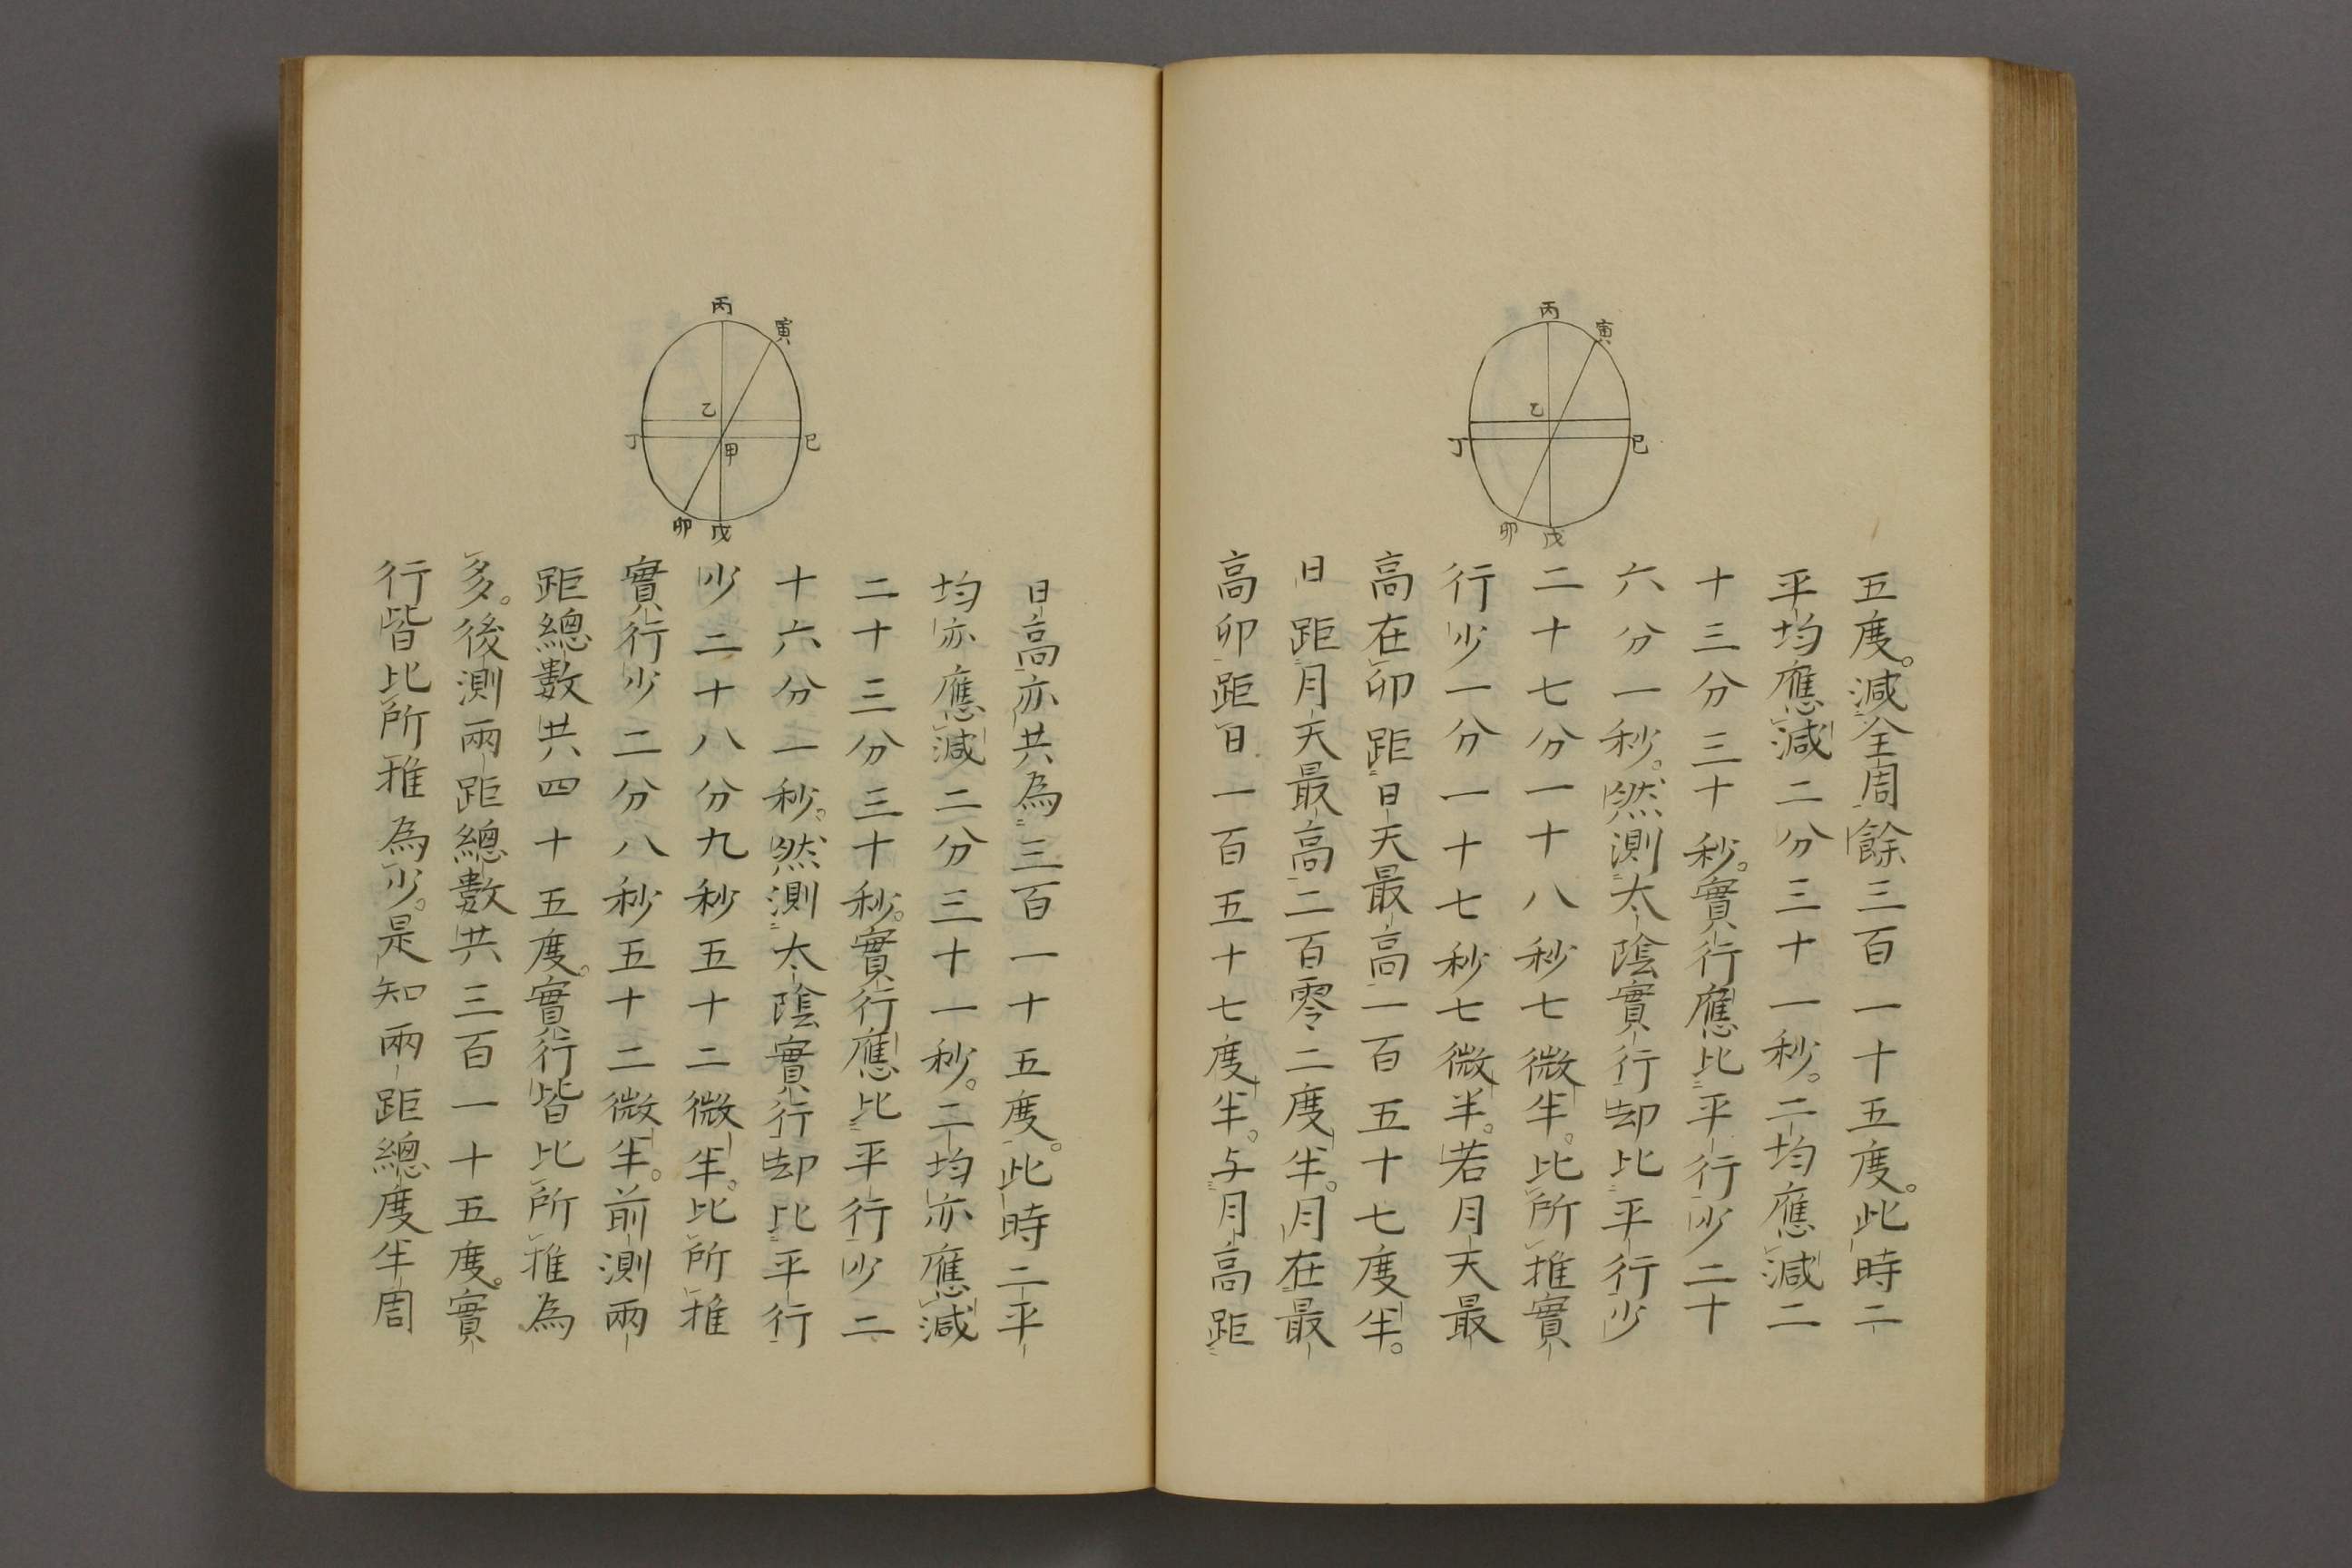 丙
寅
乙
丁
巳
卯
戊
五度。減全周餘三百一十五度。此時二
平均應減二分三十一秒。二均應減二
十三分三十秒。實行應比平行少二十
六分一秒。然測太陰實行却比平行少
二十七分一十八秒七微半。比所推實
行少一分一十七秒七微半。若月天最
高在卯距日天最高一百五十七度半。
日距月天最高二百零二度半。月在最
高卯距日一百五十七度半。与月高距
丙
寅
乙
丁
甲
巳
卯
戊
日高亦共為三百一十五度。此時二平
均亦應減二分三十一秒。二均亦應減
二十三分三十秒。實行應比平行少二
十六分一秒。然測太陰實行却比平行
少二十八分九秒五十二微半。比所推
實行少二分八秒五十二微半。前測兩
距總數共四十五度。實行皆比所推為
多。後測兩距總數共三百一十五度。實
行皆比所推為少。是知兩距總度半周